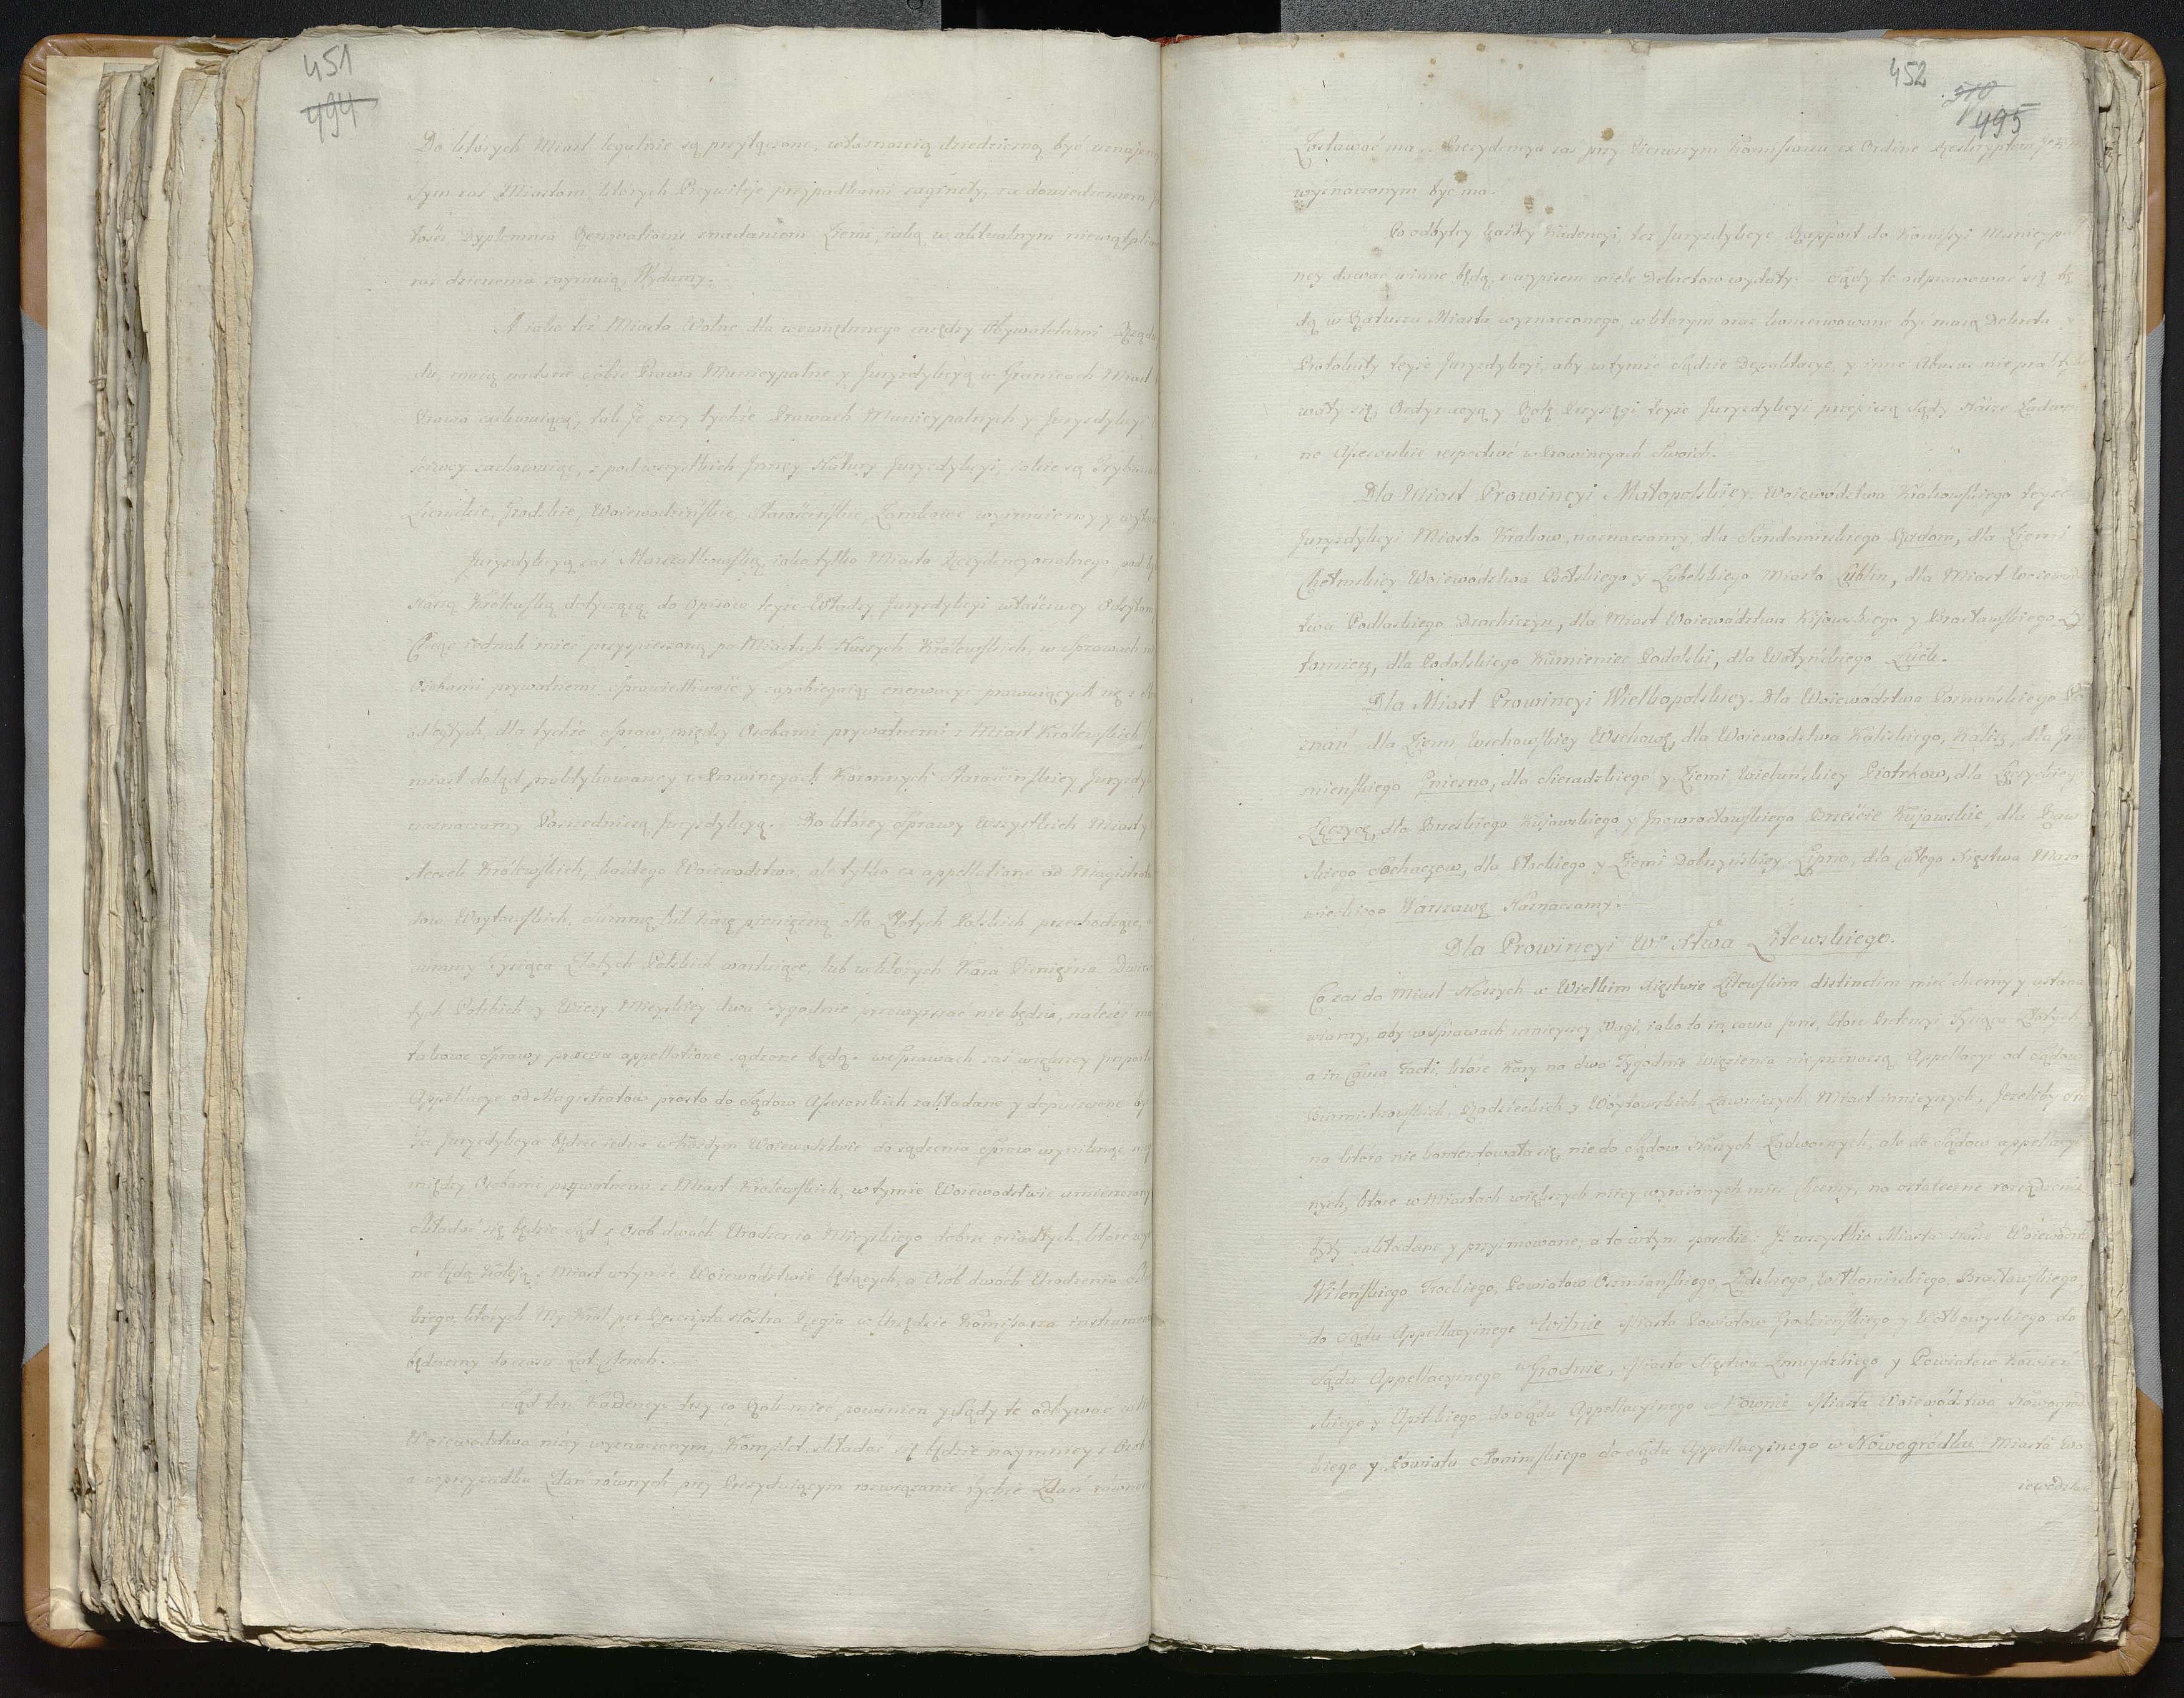 451
494
Do których Miast legalnie są przyłączone, własnością dziedziczną być uznajemy
Tym zaś Miastom, których Przywileje przypadkami zaginęły, za dowiedzeniem
tości, Dyplomma Renovationis z nadaniem Ziemi, iaką w aktualnym niewątpliwie
raz dzierżeniu zaymuią, Wydamy.
A iako też Miasta Wolne, dla wewnętrznego między Obywatelami Rządu
du, maią nadane sobie Prawa Municypalne y Juryzdykcyą w Granicach Miast
Prawa exekwuiącą, tak Je przy tychże Prawach Municypalnych y Juryzdykcyi
ściwey zachowuiąc, z pod wszystkich Inney Natury Juryzdykcyi, iakie są Trybunal
Ziemskie, Grodzkie, Woiewodzińskie, Starościńskie, Zamkowe wyimuiemy y
Juryzdykcyą zaś Marszałkowską, iako tylko Miasta Rezydencyonalnego, pod
Naszą Królewską dotyczącą do opisania teyże Władzy Juryzdykcyi właściwey Odsyłamy
Chcąc iednak mieć przyspieszoną po Miastach Naszych Królewskich, w Sprawach
Osobami prywatnemi Sprawiedliwość y zapobiegaiąc enerwacyi prawuiących się z
odległych, dla tychże Spraw, między Osobami prywatnemi z Miast Królewskich
miast dotąd praktykowaney w Prowincyach Koronnych Starościńskiey Juryzdyk
naznaczamy Pośrednią Juryzdykcyą. Do którey Sprawy Wszystkich Miast y
steczek Królewskich, każdego Woiewództwa, ale tylko ex appellatione od Magistratu
sow Woytowskich, Summę lub Karę pieniężną Sto Złotych Polskich przechodzące,
summy Tysiąca Złotych Polskich waruiące, lub w których Kara Pieniężna Dwieście
tych Polskich y Wieży Mieyskiey dwa Tygodnie przewyższać nie będzie, należeć ma
takowe Sprawy procesu appellatione sądzone będą. w Sprawach zaś większey Import
Appellacye od Magistratów prosto do Sądow Assessorskich zakładane y dopuszczone
Ta Juryzdykcya będzie iedna w każdym Woiewodztwie do sądzenia Spraw wyniknąć
między Osobami prywatnemi z Miast Królewskich, w tymże Woiewodztwie umieszczonych
Składać się będzie Sąd z Osób dwóch Urodzenia Mieyskiego dobrze osiadłych, które
ne będą koleją z Miast w tymże Woiewództwie będących, a Osób dwóch Urodzenia
kiego, których My Król per Rescripta Nostra Regia w Urzędzie Komissarza
będziemy do czasu Lat Czterech.
Sąd ten Kadencye trzy co Rok mieć powinien y Sądy te odbywać w
Woiewodztwa niżey wyznaczonym, Komplet składać się będzie naymniey z Osób
a w przypadku Zdań równych przy Prezyduiącym rozwiązanie tychże Zdań równych
452
510
495
Zostawać ma. Prezydencya zaś przy Pierwszym Komissarzu ex Ordine Reskryptem
wyznaczonym być ma.
Po odbytey każdey Kadencyi, też Juryzdykcye Rapport do Kommissyi Municypal
ney dawać winne będą, z wypisem wiele Dekretow wydały. Sądy te odprawować się bę
dą w Ratuszu Miasta wyznaczonego, w którym oraz konserwowane być maią Dekreta
Protokuły teyże Juryzdykcyi, aby w tymże Sądzie Depaktacye, y inne Abusus nie prakty
wały się, Ordynacyą y Rotę Przysięgi teyże Juryzdykcyi przepiszą Sądy Nasze Zadwor
ne Assessorskie respectivè w Prowincyach Swoich.
Dla Miast Prowincyi Małopolskiey Woiewództwa Krakowskiego teyże
Juryzdykcyi Miasto Krakow naznaczamy, dla Sandomirskiego Radom, dla Ziemi
Chełmskiey Woiewództwa Bełskiego y Lubelskiego Miasto Lublin, dla Miast Woiewódz
twa Podlaskiego Drochiczyn, dla Miast Woiewództwa Kijowskiego y Bracławskiego Ży
tomierz, dla Podolskiego Kamieniec Podolski, dla Wołyńskiego Łuck.
Dla Miast Prowincyi Wielkopolskiey. Dla Woiewództwa Poznańskiego Po
znań, dla Ziemi Wschowskiey Wschowę, dla Woiewództwa Kaliskiego, Kalisz, dla Gnie
znieńskiego Gniezno, dla Sieradzkiego y Ziemi Wieluńskiey Piotrkow, dla Łęczyckiego
Łęczycę, dla Brzeskiego Kujawskiego y Inowrocławskiego Brzeście Kujawskie, dla Raw
skiego Sochaczow, dla Płockiego y Ziemi Dobrzyńskiey Lipno, dla całego Xięstwa Mazo
wieckiego Warszawę Naznaczamy.
Dla Prowincyi Wo Xtwa Litewskiego.
Co zaś do Miast Naszych w Wielkim Xięstwie Litewskim distinctim mieć chcemy y ustana
wiamy, aby w Sprawach mnieyszey Wagi, iako to in causa Juris, które Pretensyi Tysiąca Złotych
a in Causa Facti, które Kary na dwa Tygodnie więzienia nie przenoszą, Appellacye od Sądow
Burmistrzowskich, Radzieckich y Woytowskich Ławniczych Miast mnieyszych, Jeżeliby
na które nie kontentowała się, nie do Sądow Naszych Zadwornych, ale do Sądow appellacyi
nych, które w Miastach większych niżey wyrażonych mieć Chcemy, na ostateczne rozsądzenie
były zakładane y przyimowane, a to w tym sposobie: Iż wszystkie Miasta Nasze Woiewództw
Wileńskiego Trockiego, Powiatow Oszmiańskiego, Lidzkiego, Wiłkomirskiego, Brasławskiego,
do Sądu Appellacyinego w Wilnie Miasta Powiatow Grodzieńskiego y Wołkowyskiego do
Sądu Appellacyinego w Grodnie, Miasta Xięstwa Żmuydzkiego y Powiatow Kowień
skiego y Upitskiego do Sądu Appellacyinego w Kownie Miasta Woiewództwa Nowogródz
kiego y Powiatu Słonimskiego do Sądu Appellacyinego w Nowogródku Miasta Wo
iewództwa